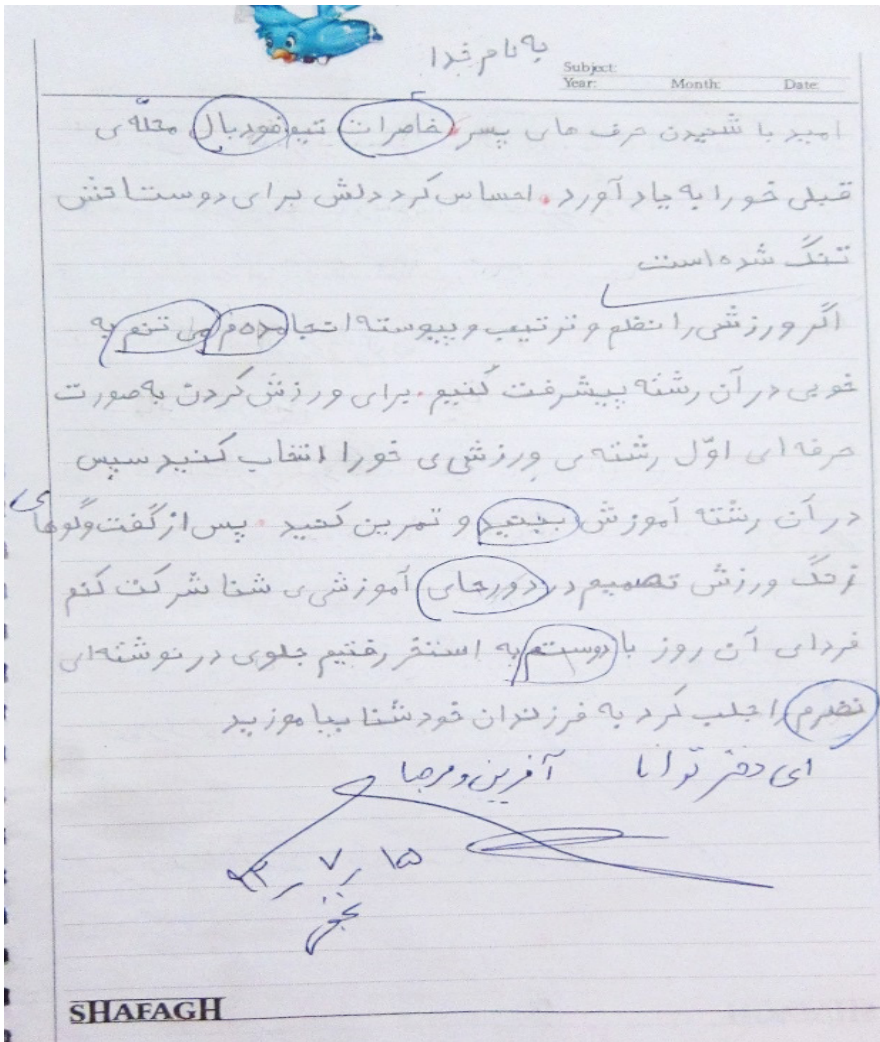 به نام خدا
Subject:
Year: Month: Date:
امید با شنیدن حرف های پسر خاطرات تیم فودبال محلّه ی
قبلی خورا به یاد آورد. احساس کرد دلش برای دوستانش
تنگ شده است
اگر ورزشی را نظم و ترتیب و پیوسته انجا مدهم می تنم به
خوبی در آن رشته پیشرفت کنیم. برای ورزش کردن به صورت
حرفه ای اوّل رشته ی ورزشی ی خورا انتخاب کنید سپس
در آن رشته آموزش ببنید و تمرین کنید. پس از گفت وگوهای
زنگ ورزش تصمیم در دورهای آموزشی ی شنا شرکت کنم
فردای آن روز با دوستم به استخر رفتیم جلوی در نوشته ای
نضرم را جلب کرد به فرزندان خود شنا بیاموزید
ای دختر توانا آفرین و مرحبا
۱۵ ر ۷ ر ۹۳
SHAFAGH